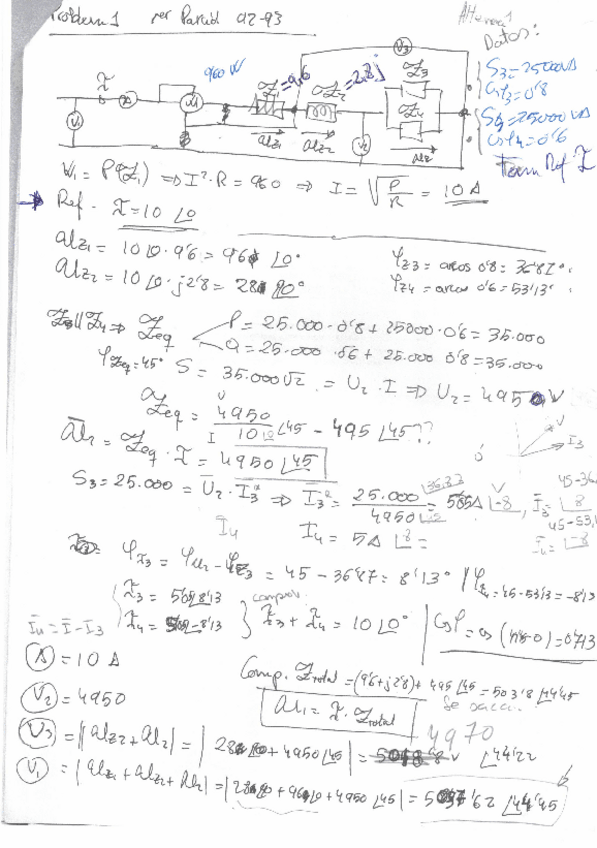 Problema 1 1er Parcial 92-93
Alterna 1
Datos:
S₃=25000VA
cosφ₃=0'8
S₄=25000VA
cosφ₄=0'6
Tram Ref I
960 W
Z₁=9,6
Z₂=2,8j
Z₃
Z₄
V₃
I
A
W₁
V₁
V₂
al_Z1
al_Z2
al₂
W₁ = P(Z₁) ⇒ I²·R = 960 ⇒ I = √(P/R) = 10 A
Ref - I = 10 ∠0
al_Z1 = 10∠0 · 9'6 = 96 ∠0°
al_Z2 = 10∠0 · j2'8 = 28 ∠90°
φ_Z3 = arcos 0'8 = 36'87°
φ_Z4 = arcos 0'6 = 53'13°
Z₃||Z₄ ⇒ Z_eq
P = 25.000·0'8 + 25000·0'6 = 35.000
Q = 25.000·0'6 + 25.000 0'8 = 35.000
φ_Zeq = 45° S = 35.000√2 = U₂·I ⇒ U₂ = 4950 V
Z_eq = 4950/10 ∠45 - 495 ∠45??
al₂ = Z_eq · I = 4950 ∠45
S₃ = 25.000 = U₂·I₃* ⇒ I₃* = 25.000 ∠36,87 / 4950 ∠45 = 5,05A ∠-8, I₃ ∠8
I₄ I₄ = 5A ∠8 =
φ_I3 = φ_U2 - φ_Z3 = 45 - 36'87 = 8'13° / φ_I4 = 45-53'13 = -8'13
I₃ = 5'05 ∠8'13
I₄ = 5'05 ∠-8'13
I₃ + I₄ = 10 ∠0°
cosφ = cos (44'5-0) = 0'713
I₄ = I - I₃
A = 10 A
Comp. Z_total = (9'6+j2'8) + 495 ∠45 = 503'8 ∠44'45
V₂ = 4950
al₁ = I·Z_total
4970
V₃ = |al_Z2 + al₂| = | 28∠90 + 4950 ∠45 | = V ∠44'22
V₁ = |al_Z1 + al_Z2 + al₂| = |28∠90 + 96∠0 + 4950 ∠45| = 5037'62 ∠44'45